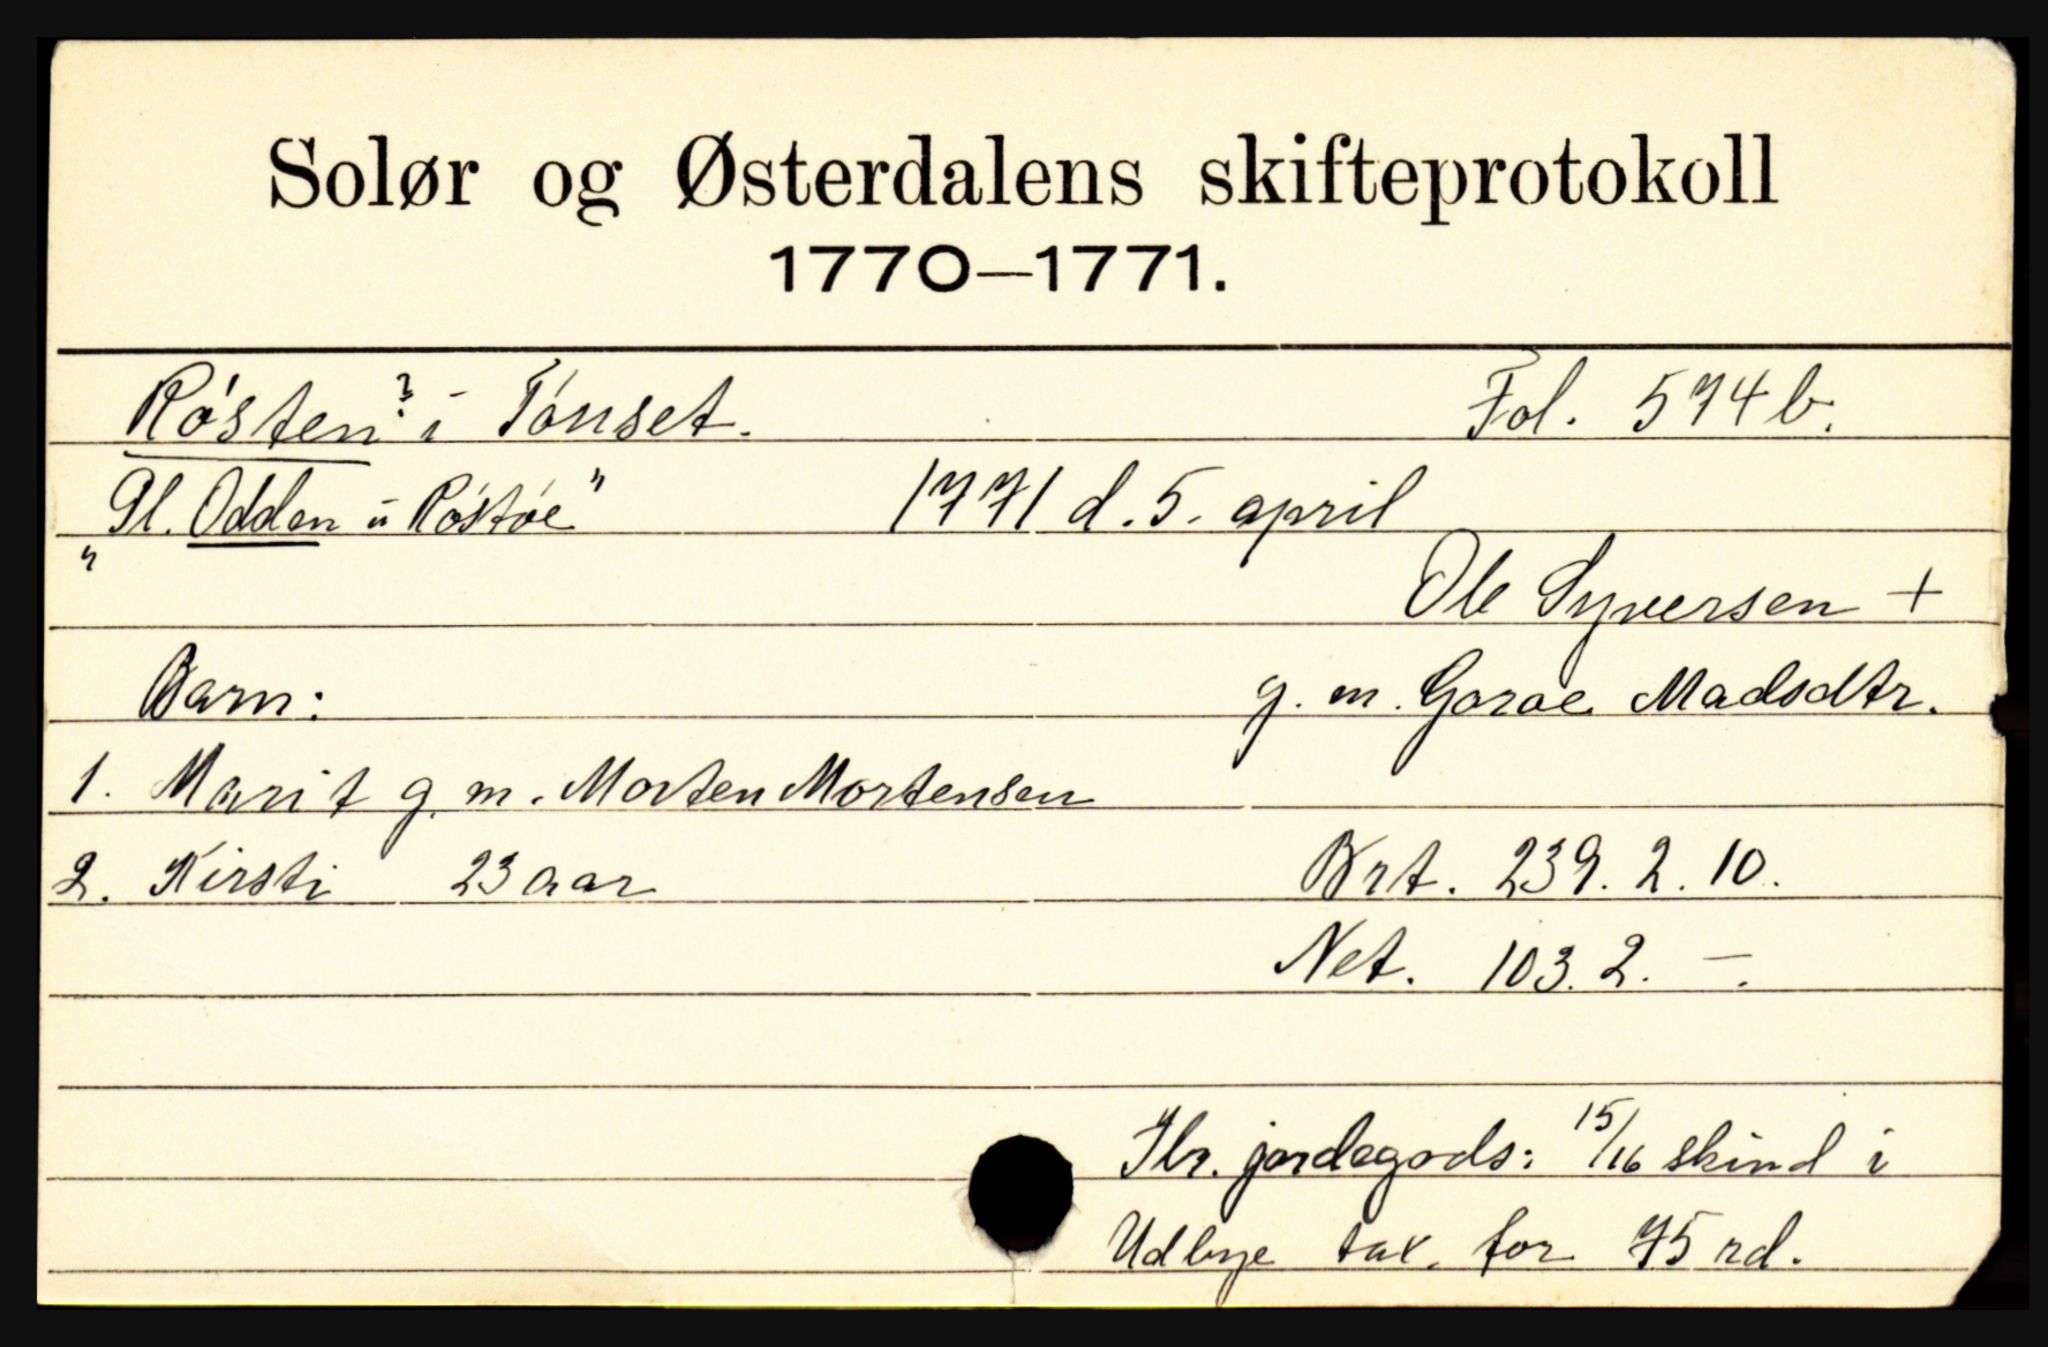 Solør og Østerdalens skifteprotokoll
1770—1771.
Røsten? i Tønset. Fol. 574 b.
"Pl. Odden i Røstøe" 1771 d. 5. april
Ole Syversen +
Barn: g. m. Goroe Madsdtr.
1. Marit g. m. Morten Mortensen
2. Kirsti 23 aar Brt. 239. 2. 10.
Net. 103. 2. –.
Ibr. jordegods: 15/16 skind i
Udbye tax. for 75 rd.